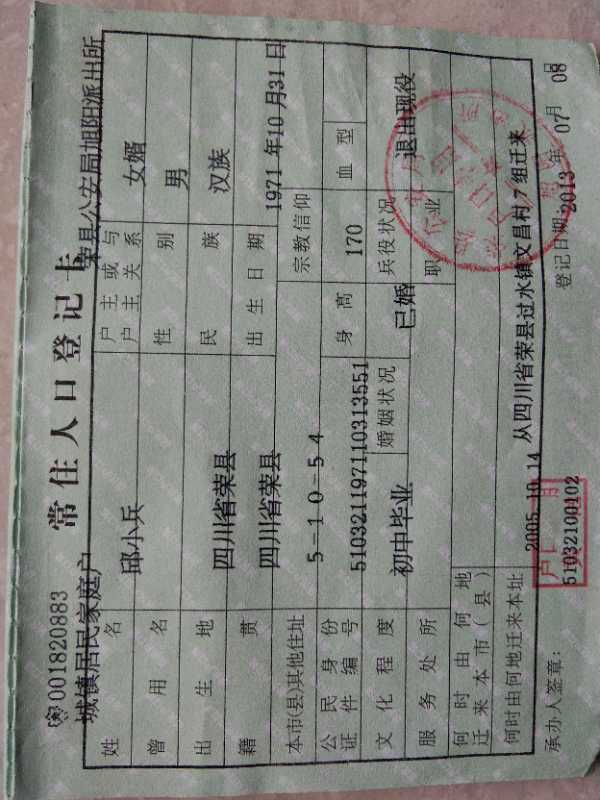 001820883
常住人口登记卡
城镇居民家庭户 荣县公安局旭阳派出所
姓名 邱小兵 户主或与户主关系 女婿
曾用名 性别 男
出生地 四川省荣县 民族 汉族
籍贯 四川省荣县 出生日期 1971年10月31日
本市(县)其他住址 5-10-54 宗教信仰
公民身份证件编号 510321197110313551 身高 170 血型
文化程度 初中毕业 婚姻状况 已婚 兵役状况 退出现役
服务处所 职业
何时由何地迁来本市(县)
何时由何地迁来本址 2005.10.14 从四川省荣县过水镇文昌村7组迁来
51032100102
承办人签章: 登记日期:2013年07月08日